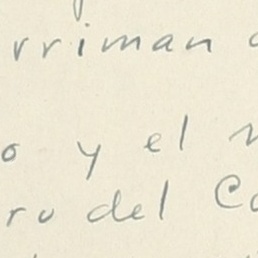 rriman
o y el
ro del Co